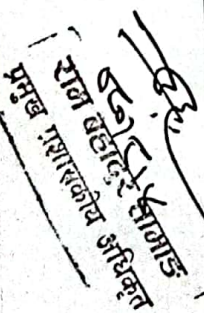 राम बहादुर लामाङ
प्रमुख प्रशासकीय अधिकृत